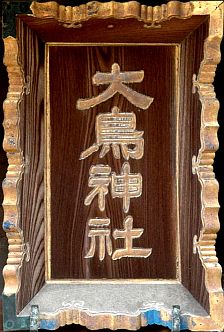 大鳥神社